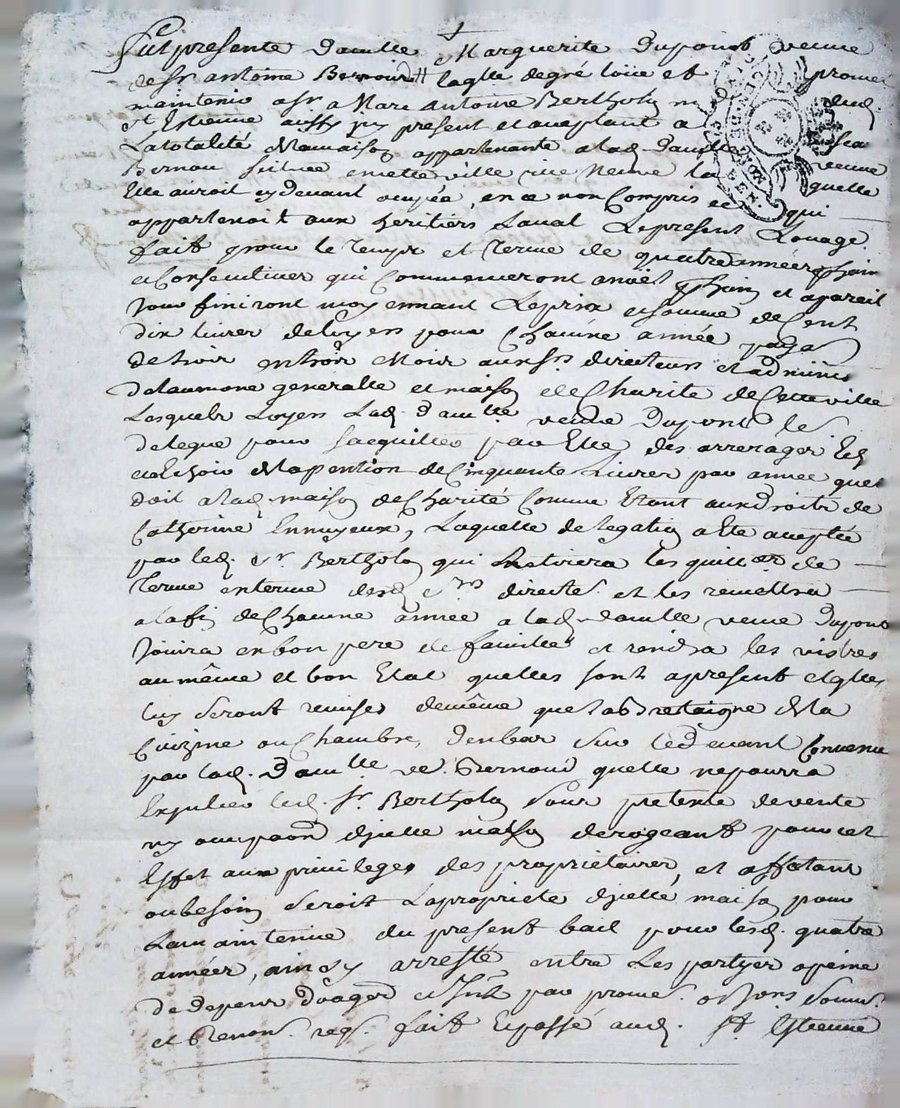 Fut presente damlle Marguerite Dupont veuve
de Sr antoine Bernoud laqlle de gré loüe et promet
maintenir a Sr Marc Antoine Bertholon
St Estienne aussy icy present et aceptant
La totalité maison appartenante a lad. damlle veuve
Bernou située en cette ville rüe Neuve laquelle
Elle auroit cy devant ocupée, en ce non Compris ce qui
appartenoit aux heritiers Laval Le present Loüage
fait pour le temps et terme de quatre années
et Consecutives qui Commenceront et a pareil
Jour finiront moyennant Le prix et somme de Cent
dix livres de loyers pour Chacune année
de six mois en six mois aux srs directeurs et adminis
de laumone generalle et maison de Charité de cette ville
Lesquels Loyers Lad. damlle veuve Dupont le
delegue pour sacquitter par Elle des arrerages
et de la pention de Cinquante Livres par année que
doit a lad. maison de Charité Comme Etant aux droits de
Catherine Ennuyeux, Laquelle delegation a été aceptée
par led. Sr Bertholon qui retirera les quittces de
terme en terme desd. Srs directrs. et les remettra
a la fin de Chacune année a lad. damlle veuve Dupont
Joüira en bon pere de famille et rendra les vistres
au même et bon Etat quelles sont apresent et qlles
luy seront remises de même que
Cuizine ou Chambre denbas sur le devant Convenu
par lad. damlle ve. Bernoud quelle ne pourra
Expulser led. Sr Bertholon sous pretexte de vente
ny dicelle maison derogeant pour cet
Effet aux privileges des proprietaires, et affectant
au besoin seroit La proprieté dicelle maison pour
La maintenüe du present bail pour lesd. quatre
années, ainsy arresté entre Les partyes a peine
de depens domages et Int par promes.
et Renon reqs. fait et passé aud. St Estienne